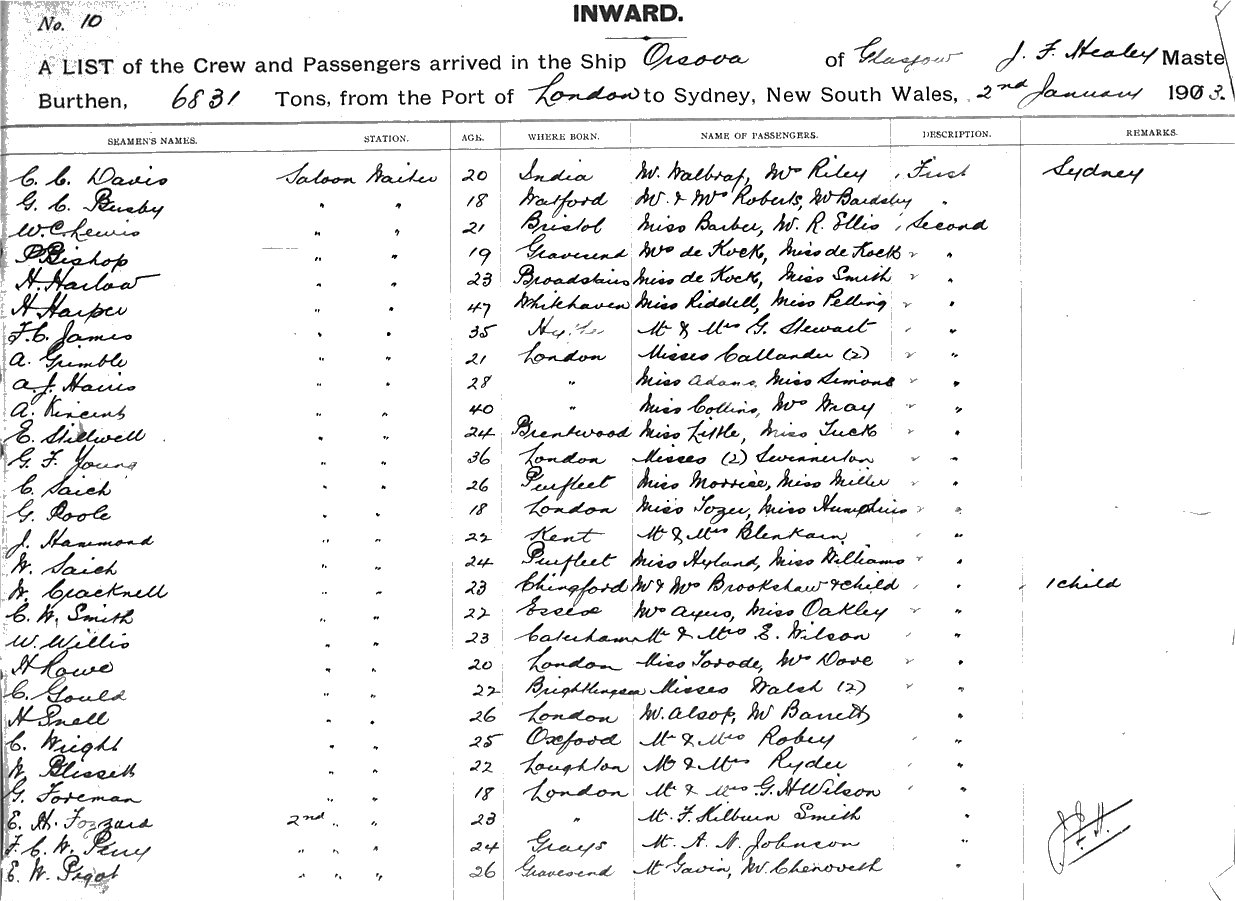 No. 10
INWARD.
A LIST of the Crew and Passengers arrived in the Ship Orsova of Glasgow J. F. Healey Maste
Burthen, 6831 Tons, from the Port of London to Sydney, New South Wales, 2nd January 1903.
SEAMEN'S NAMES. STATION. AGE. WHERE BORN. NAME OF PASSENGERS. DESCRIPTION. REMARKS.
C. C. Davis Saloon Waiter 20 India Mr. Walbrap, Mrs Riley First Sydney
G. C. Busby " " 18 Watford Mr. & Mrs Roberts, Mr Bardsby "
W. C. Lewis " " 21 Bristol Miss Barber, Mr. R. Ellis Second
P Bishop " " 19 Gravesend Mrs de Kock, Miss de Kock "
H. Harlow " " 23 Broadstairs Miss de Kock, Miss Smith "
H Harper " " 47 Whitehaven Miss Riddell, Miss Pelling "
F. C. James " " 35 Hythe Mr & Mrs G. Stewart "
A. Grimble " " 21 London Misses Callander (2) "
A. J. Harris " " 28 " Miss Adams, Miss Simons "
A. Vincent " " 40 " Miss Collins, Mrs Wray "
E. Stillwell " " 24 Brentwood Miss Little, Miss Tuck "
G. F. Young " " 36 London Misses (2) Swinnerton "
C. Saich " " 26 Purfleet Miss Morrice, Miss Miller "
G. Poole " " 18 London Miss Tozer, Miss Humphries "
J. Hammond " " 22 Kent Mr & Mrs Blenkarn "
W. Saich " " 24 Purfleet Miss Hyland, Miss Williams "
W. Cracknell " " 23 Chingford Mr & Mrs Brookshaw & child " 1 child
C. W. Smith " " 22 Essex Mrs Ayers, Miss Oakley "
W. Willis " " 23 Caterham Mr & Mrs E. Wilson "
H Rowe " " 20 London Miss Torode, Mrs Dove "
C. Gould " " 22 Brightlingsea Misses Walsh (2) "
H Snell " " 26 London Mr. Alsop, Mr Barrett "
C. Wright " " 25 Oxford Mr & Mrs Robey "
W. Blissett " " 22 Loughton Mr & Mrs Ryder "
G. Foreman " " 18 London Mr & Mrs G. H Wilson "
E. H. Fozzard 2nd " " 23 " Mr. F. Kilburn Smith "
F. C. W. Perry " " " 24 Grays Mr. A. N. Johnson "
E. W. Pigot " " " 26 Gravesend Mr Gavin, Mr. Chenoweth "
J. F. H.